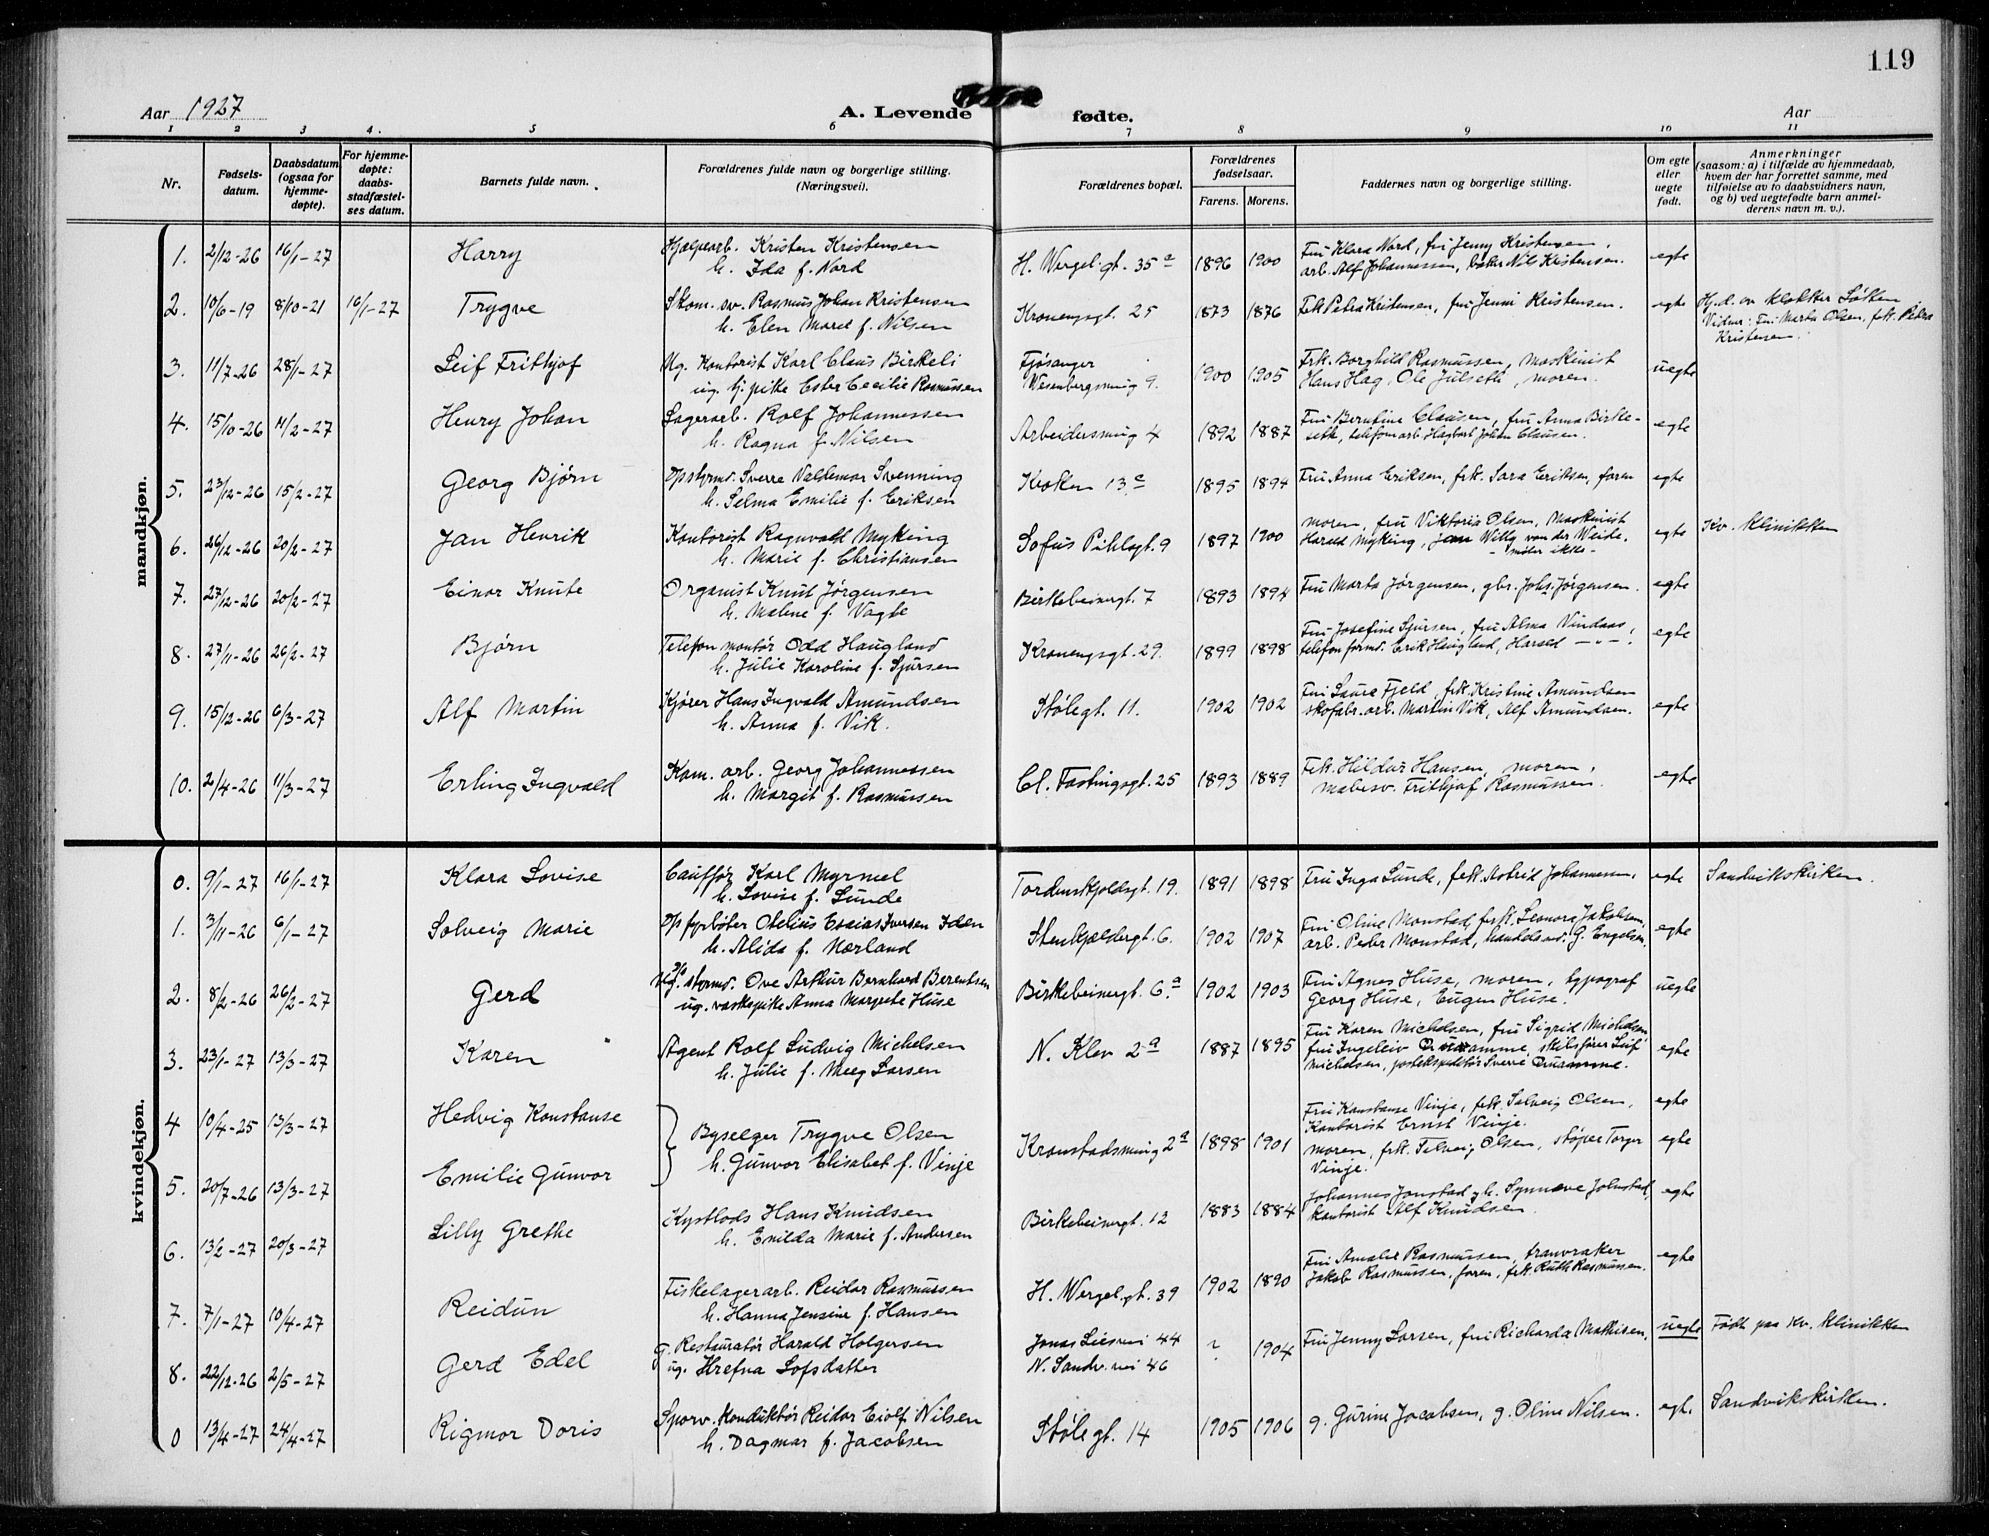 119
Aar 1927 A. Levende fødte. Aar
1 2 3 4. 5 6 7 8 9 10 11
Nr. Fødsels-datum. Daabsdatum (ogsaa for hjemme-døpte). For hjemme-døpte: daabs-stadfæstel-ses datum. Barnets fulde navn. Forældrenes fulde navn og borgerlige stilling. (Næringsvei). Forældrenes bopæl. Forældrenes fødselsaar. Farens. Morens. Faddernes navn og borgerlige stilling. Om egte eller uegte født. Anmerkninger (saasom: a) i tilfælde av hjemmedaab, hvem der har forrettet samme, med tilføielse av to daabsvidners navn, og b) ved uegtefødte barn anmel-derens navn m. v.).
mandkjøn.
1. 2/12-26 16/1-27 Harry Hjælpearb. Kristen Kristensen H. Wergel.gt. 35a 1896 1900 Fru Klara Nord, fru Jenny Kristensen, egte
h. Ida f. Nord arb. Alf Johannessen, baker Nils Kristensen.
2. 10/6-19 8/10-21 16/1-27 Trygve Skom. sv. Rasmus Johan Kristensen Kronengsgt. 25 1873 1876 Frk Petra Kristensen, fru Jenni Kristensen. egte Hj.d. av klokker Søtten
h. Elen Marie f. Nilsen Vidner: Fru Marta Olsen, frk. Petra
Kristensen.
3. 11/7-26 28/1-27 Leif Frithjof Ug. Kontorist Karl Claus Birkeli Fjøsanger 1900 1905 Frk. Borghild Rasmussen, Maskinist uegte
ug. hj. pike Ester Cecilie Rasmussen Wesenbergsmug 9. Hans Hag, Ole Julseth, moren.
4. 15/10-26 11/2-27 Henry Johan Lagerarb. Rolf Johannessen Arbeidersmug 4 1892 1887 Fru Berntine Clausen, fru Anna Birke- egte
h. Ragna f. Nilsen seth, telefonarb. Hagbart Johan Clausen.
5. 23/12-26 15/2-27 Georg Bjørn Opstyrmd. Sverre Valdemar Svenning Kroken 13c 1895 1894 Fru Anna Eriksen, frk. Sara Eriksen, faren egte
h. Selma Emilie f. Eriksen
6. 26/12-26 20/2-27 Jan Henrik Kontorist Ragnvald Myking Sofus Pihlsgt. 9 1897 1900 moren, fru Viktoria Olsen, Maskinist egte Kv. klinikken
h. Marie f. Christiansen Harald Myking, Jan Willy van der Weide.
- møter ikke -
7. 27/12-26 20/2-27 Einar Knute Organist Knut Jørgensen Birkebeinergt. 7 1893 1894 Fru Marta Jørgensen, gbr. Johs. Jørgensen. egte
h. Malene f. Vagle
8. 27/11-26 26/2-27 Bjørn Telefon montør Odd Haugland Kronengsgt. 29. 1899 1898 Fru Josefine Sjursen, fru Alma Vindaas, egte
h. Julie Karoline f. Sjursen telefonformd. Erik Haugland, Harald - " -.
9. 15/12-26 6/3-27 Alf Martin Kjører Hans Ingvald Amundsen Stølegt. 11. 1902 1902 Fru Laura Fjeld, frk. Kristine Amundsen egte
h. Anna f. Vik. skofabr. arb. Martin Vik, Alf Amundsen.
10. 2/4-26 11/3-27 Erling Ingvald Kom. arb. Georg Johannessen Cl. Fastingsgt. 25 1893 1889 Frk. Hildur Hansen, moren, egte
h. Margit f. Rasmussen malersv. Frithjof Rasmussen.
kvindekjøn.
0. 9/1-27 16/1-27 Klara Lovise Caufför Karl Myrmel Tordenskjoldsgt. 19. 1891 1898 Fru Inga Lunde, frk. Astrid Johannesen, egte Sandvikskirken.
h. Lovise f. Lunde
1. 3/11-26 6/1-27 Solveig Marie Op fyrbøter Otelius Esaias Iversen Iden Stenkjeldergt. 6. 1902 1907 Fru Oline Monstad, frk. Leonora Jakobsen, egte
h. Alida f. Nærland arb. Peder Monstad, handelsmd. G. Engelsen.
2. 8/2-26 26/2-27 Gerd Ug. styrmd. Ove Arthur Bernhard Berentsen Birkebeinergt. 6.a 1902 1903 Fru Agnes Huse, moren, typograf uegte
ug. vaskepike Anna Margrete Huse Georg Huse, Eugen Huse.
3. 23/1-27 13/3-27 Karen Agent Rolf Ludvig Michelsen N. Klev 2a 1887 1895 Fru Karen Michelsen, fru Sigrid Michelsen, egte
h. Julie f. Meeg Larsen fru Ingeleiv Qvamme, skibsfører Leif
Michelsen, postekspeditør Sverre Qvamme.
4 10/4-25 13/3-27 Hedvig Konstanse Byselger Trygve Olsen Kronstadsmug 2a 1898 1901 Fru Konstanse Vinje, frk. Solveig Olsen, egte
h. Gunvor Elisabet f. Vinje Kontorist Ernst Vinje.
5. 20/7-26 13/3-27 Emilie Gunvor moren, frk. Solveig Olsen, støper Torger egte
Vinje.
6. 13/2-27 20/3-27 Lilly Grethe Kystlods Hans Knudsen Birkebeinergt. 12 1883 1884 Johannes Jonstad, g.h. Synneve Jolmstad, egte
h. Emilda Marie f. Andersen kontorist Alf Knudsen.
7. 7/1-27 10/4-27 Reidun Fiskelagerarb. Reidar Rasmussen H. Wergel.gt. 39 1902 1890 Fru Amalie Rasmussen, tranvraker egte
h. Hanna Jensine f. Hansen Jakob Rasmussen, faren, frk. Ruth Rasmussen.
8. 22/12-26 2/5-27 Gerd Edel g. Restauratør Harald Holgersen Jonas Liesvei 44 ? 1904 Fru Jenny Larsen, fru Richarda Mathisen. uegte Født paa Kv. klinikken
ug. Hrefna Lofsdatter N. Sandv. vei 46
0 13/4-27 24/4-27 Rigmor Doris Sporv. Konduktør Reidar Eiolf Nilsen Stølegt. 14 1905 1906 g. Gurine Jacobsen, g. Oline Nilsen. egt. Sandvikskirken.
h. Dagmar f. Jacobsen